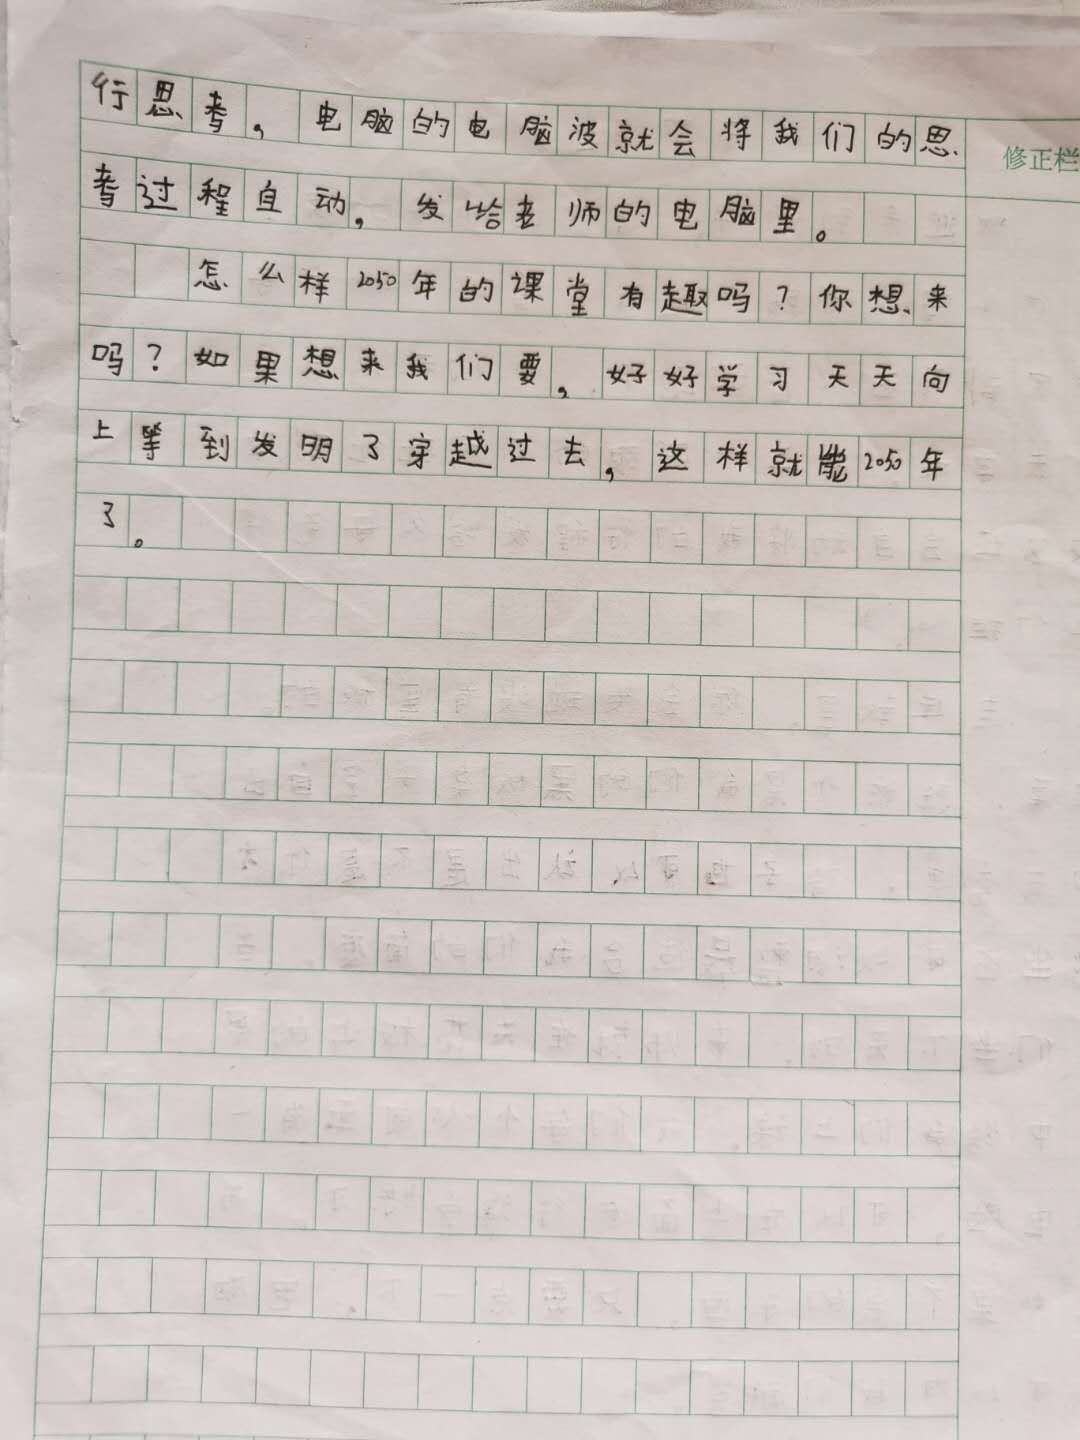 行思考，电脑的电脑波就会将我们的思
修正栏
考过程自动，发给老师的电脑里。
怎么样2050年的课堂有趣吗？你想来
吗？如果想来我们要，好好学习天天向
上等到发明了穿越过去，这样就能2050年
了。